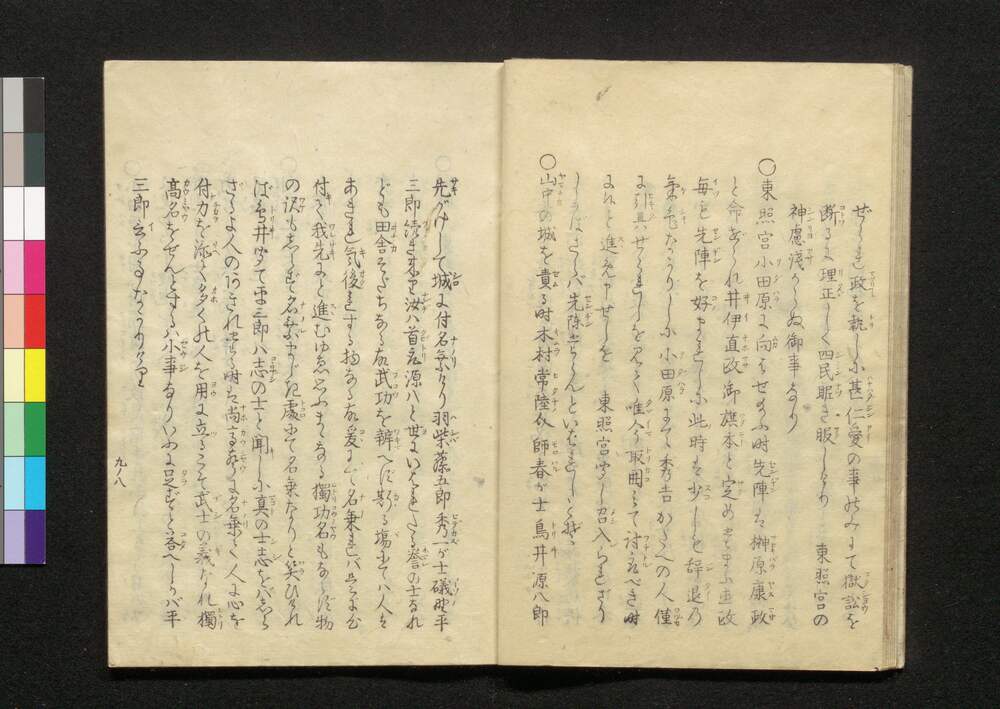 せられ政を執しに甚仁愛の事のみにて獄訟を
断るに理正しく四民眠き服しけり 東照宮の
神慮浅からぬ御事なり
○東照宮小田原に向はせ給ふ時先陣は榊原康政
と命ぜられ井伊直政御旗本と定め
毎も先陣を好まれしに此時は少しも辞退の
気色なかりしに小田原にて秀吉かたへの人僅
に引具せられしを見て唯今取囲みて討取べき時
にれと進め申せしを 東照宮
しらばさらバ先陣せらんといはれしとぞ
○山中の城を責る時木村常陸介師春が士鳥井源八郎
先がけして城に付名乗けり羽柴藤五郎秀一が士磯野平
三郎続き来り汝ハ首取源八と世にいはれたる誉の士なれ
ども田舎そだちなる故武功を辨へず斯る場にてハ人を
あきれ気後れする物なる故爰にて名乗れバ
付て我先にと進むゆゑ なる獨功名もならず物
の訳もしらず名乗まじき處にて名乗たりと笑ひけれ
ば鳥井聞て平三郎ハ志の士と聞しに真の士志をバしら
ざるよ人の 時は尚高聲に名乗て人に心を
付力を添て多くの人を用に立るこそ武士の義なれ獨
高名をせんとするハ小事なりいふに足ずと答へしかバ平
三郎云ふ事なかりけり
九ノ八